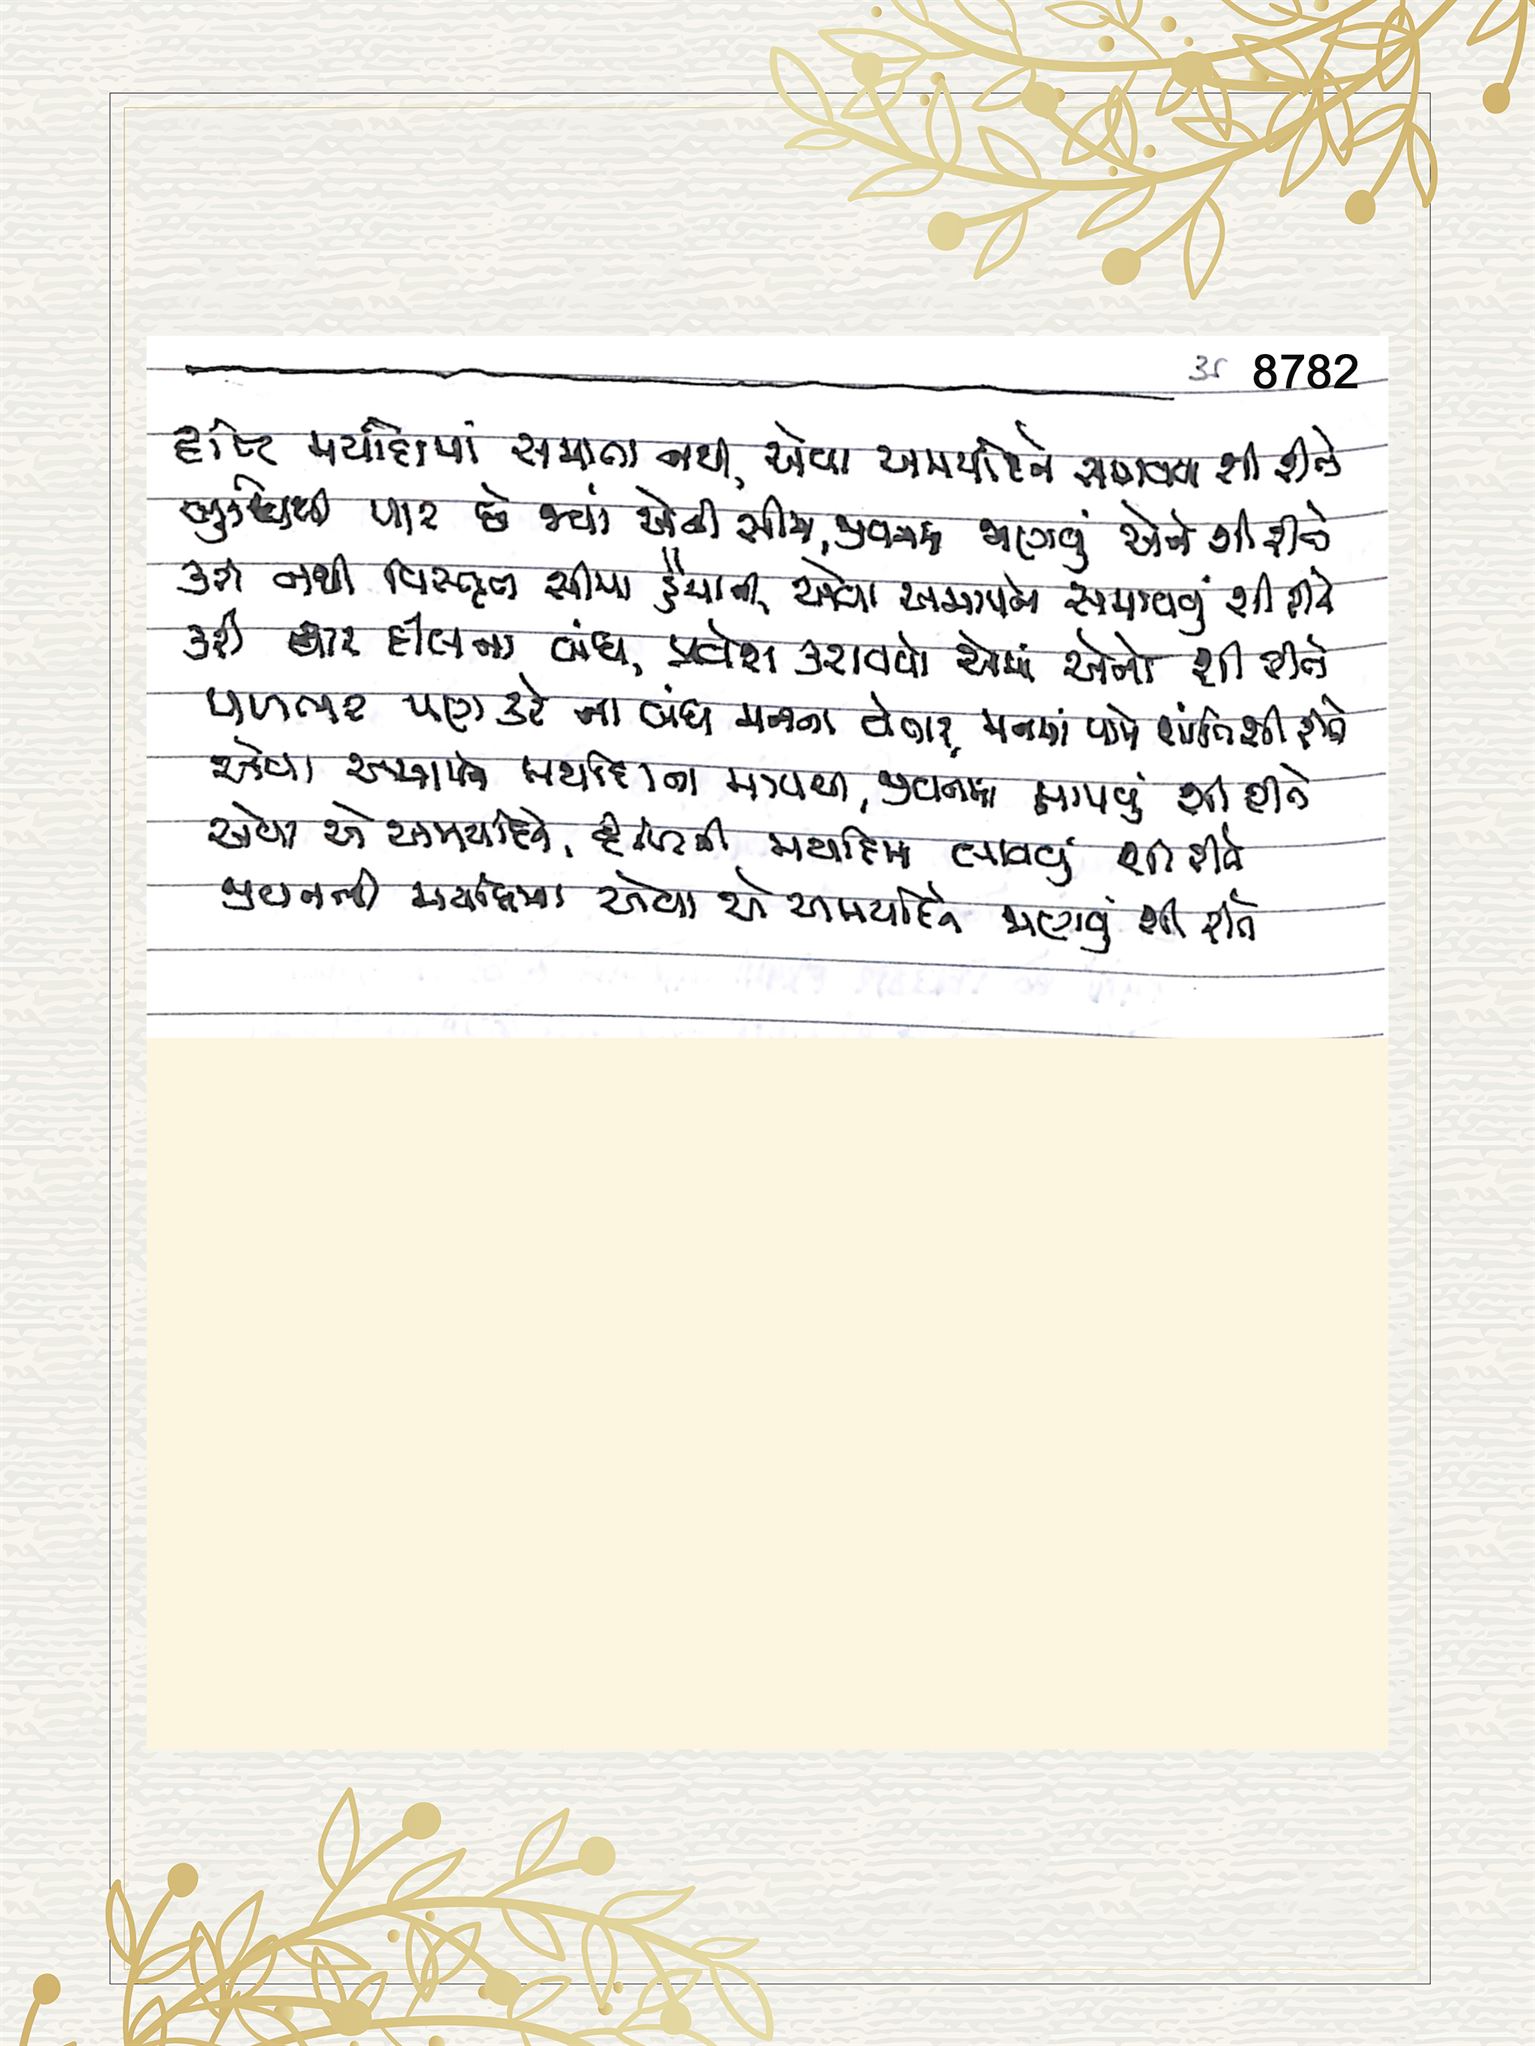 ૩૬ 8782
દૃષ્ટિ મર્યાદામાં સમાતા નથી, એવા અમર્યાદને સમાવવા શી રીતે
બુદ્ધિથી પાર છે જ્યાં એની સીમા, જીવનમાં જાણવું એને શી રીતે
કરી નથી વિસ્તૃત સીમા હૈયાની, એવા અમાપને સમાવવું શી રીતે
કરી દ્વાર દીલના બંધ, પ્રવેશ કરાવવો એમાં એનો શી રીતે
પળભર પણ કરે ના બંધ મનના વેપાર, મનમાં પામે શાંતિ શી રીતે
એવા અમાપને મર્યાદાના માપથી, જીવનમાં માપવું શી રીતે
એવા એ અમર્યાદને, દૃષ્ટિની મર્યાદામાં લાવવું શી રીતે
જીવનની મર્યાદામાં એવા એ અમર્યાદને જાણવું શી રીતે